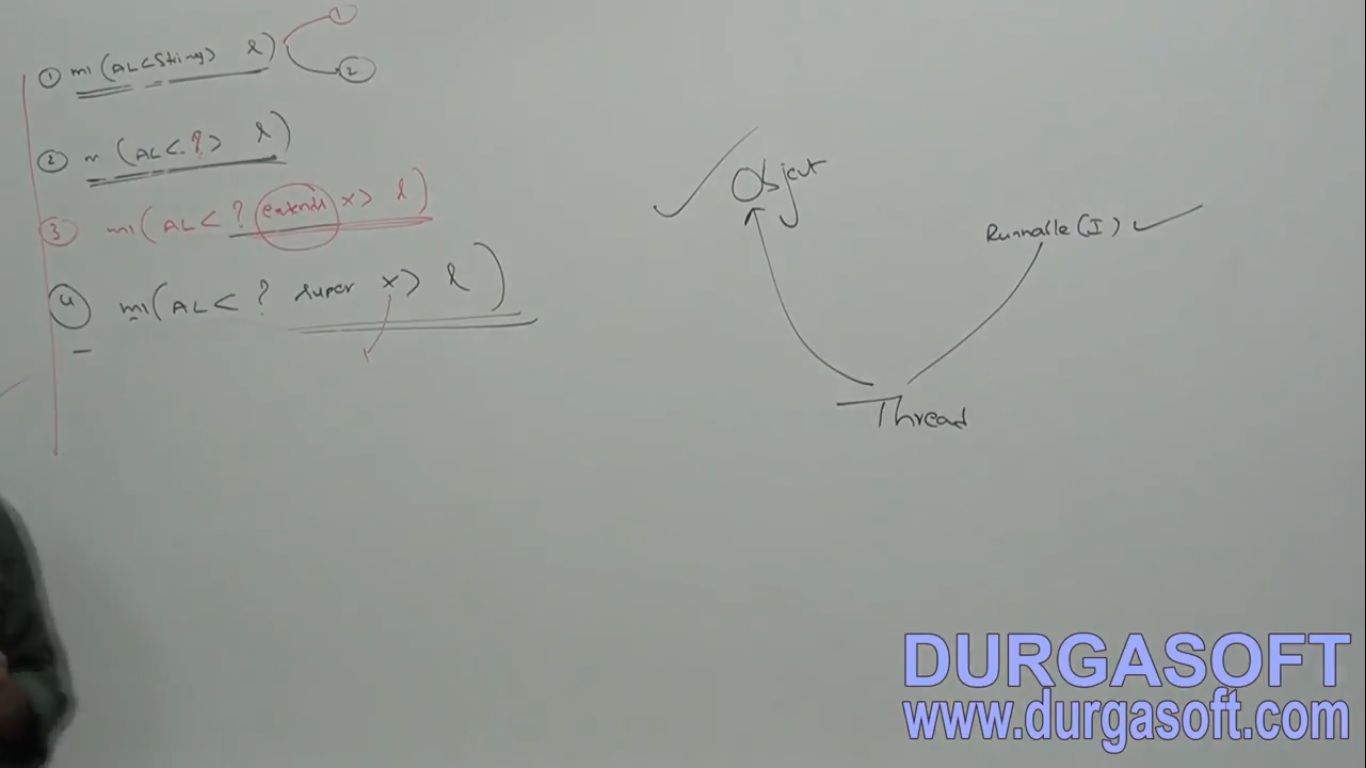 ① m1 (AL<String> l) ①
②
② m (AL<?> l)
③ m1 (AL<? extends x> l)
④ m1 (AL<? super x> l)
Object
Runnable (I)
Thread
DURGASOFT
www.durgasoft.com